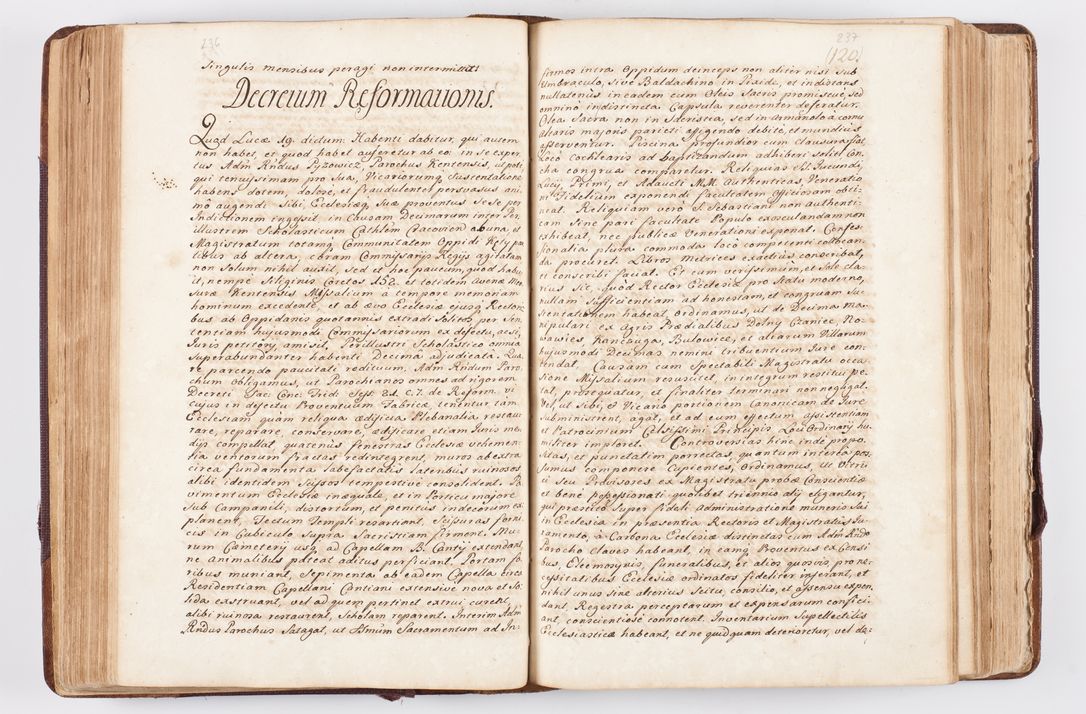 236
Singulis mensibus peragi non intermittat.
Decretum Reformationis.
Quod Lucæ 19. dictum: Habenti dabitur, qui autem
non habet, et quod habet auferetur ab eo: in se exper-
tus Adm Rndus Pyzowicz Parochus Kentensis, utpote
qui tenuissimam pro Sua, Vicariorumq Sustentatione
habens dotem, dolose, et fraudulenter persvasus ani-
mô augendi Sibi, Ecclesiæq Suæ proventus Sese per
Indictionem ingessit in Causam Decimarum inter Per
illustrem Scholasticum Cathlem Cracovien ab una, et
Magistratum totamq Communitatem Oppidi Kęty par
tibus ab altera, coram Commissarijs Regijs agitatam
non Solum nihil auxit, Sed et hoc paucum, quod habu
it, nempe Siliginis Coretos 152. et totidem avenæ Men
suræ Kentensis Missalium à tempore memoriam
hominum excedente, et ab ævo Ecclesiæ ejusq Rectori
bus ab Oppidanis quotannis extradi Solitos per Sen
tentiam hujusmodi Commissariorum ex defectu, acsi
Juris petitorij amisit, Perillustri Scholastico omnia
Superabundanter habenti Decima adjudicata. Qua
re parcendo paucitati redituum, Adm Rndum Paro
chum obligamus, ut Parochianos omnes ad rigorem
Decreti Sac: Conc: Trid: Sess: 21. C. 7. de Reform. vi
cujus in defectu Proventuum Fabricæ tenentur tàm
Ecclesiam quàm reliqua ædificia Plebanalia restau
rare, reparare conservare, ædificare etiam Juris me
dijs compellat, quatenus fenestras Ecclesiæ vehemen
tia ventorum fractas redintegrent, muros ab extra
circa fundamenta labefactatis lateribus ruinosos
alibi identidem Scissos tempestivè consolident. Pa
vimentum Ecclesiæ inæquale, et in Porticu majore
Sub Campanili, distortum, et penitus indecorum ex
planent, Tectum Templi resartiant, Scissuras forni
cis in Cubiculo Supra Sacristiam firment. Mu
rum Cæmeterij usq ad Capellam B. Cantij extendant
ne animalibus pateat aditus perficiant. Portam fo
ribus muniant, Sepimenta ab eadem Capella circa
Residentiam Capellani Cantiani extensive nova et So
lida exstruant, vel ad quem pertinet extrui curent,
alibi ruinosa restaurent, Scholam reparent. Interim Adm
Rndus Parochus Satagat, ut Ssmum Sacramentum ad In-
237
(120)
firmos intra Oppidum deinceps non aliter nisi Sub
Umbraculo, Sive Baldachino in Pixide, et indistans
nullatenùs in eadem cum Oleis Sacris promiscuè, sed
omninò indistincta Capsula reverenter deferatur.
Olea Sacra non in Sacristia, sed in Armariolo à cornu
altaris majoris parieti affigendo debitè, et mundiùs
asserventur. Piscina profundior cum clausura fiat,
Locô cochlearis ad baptizandum adhiberi soliti Con
cha congrua comparetur. Reliquias SS. Jucundi,
Lucij, Primi, et Adaucti MM. authenticas Veneratio
ni Fidelium exponendi facultatem Officiosam obti
neat. Reliquiam verò S. Sebastiani non authenti
cam Sine pari facultate Populo exosculandam non
exhibeat, nec publicæ Venerationi exponat. Confes
sionalia plura commoda locô competenti collocan
da procuret. Libros Metrices exactiùs conscribat,
et conscribi faciat. Et cum verissimum, et Sole cla
rius Sit, quod Rector Ecclesiæ pro Statu moderno,
nullam Sufficientiam ad honestam, et congruam Sus
tentationem habeat, Ordinamus, ut de Decima Ma
nipulari ex Agris Prædialibus Dolny Czaniec, No
wawies, Kańczuga, Bulowice, et aliarum Villarum
hujusmodi Decimas nemini tribuentium Jure con
tendat. Causam cum Spectabili Magistratu occa
sione Missalium resuscitet, in integrum restitui pe
tat, prosequatur, et finaliter terminari non negligat.
Vel, ut Sibi, et Vicario portionem Canonicam de Jure
Subministrent, agat, et ad eum effectum assistentiam
et Patrocinium Celsissimi Principis Loci Ordinarij hu
militer imploret. Controversias hinc inde propo
sitas, et punctatim porrectas, quantum in certa pos
sumus componere Cupientes, Ordinamus, ut Vitri
ci Seu Provisores ex Magistratu probæ Conscientiæ
et benè possessionati quolibet triennio alij eligantur,
qui præstito Super fideli administratione muneris Sui
in Ecclesia in præsentia Rectoris et Magistratûs Ju
ramento, à Carbona Ecclesiæ distinctas cum Adm Rndo
Parocho claves habeant, in eamq Proventus ex Censi
bus, Eleemosynis, funeralibus, et alios quosvis, pro ne
cessitatibus Ecclesiæ ordinatos fideliter inferant, et
nihil unus sine alterius Scitu, consilio, et assensu expen
dant, Regestra perceptarum et expensarum confici
ant, conscientiosè connotent. Inventarium Supellectilis
Ecclesiasticæ habeant, et ne quidquam deterioretur, vel da-